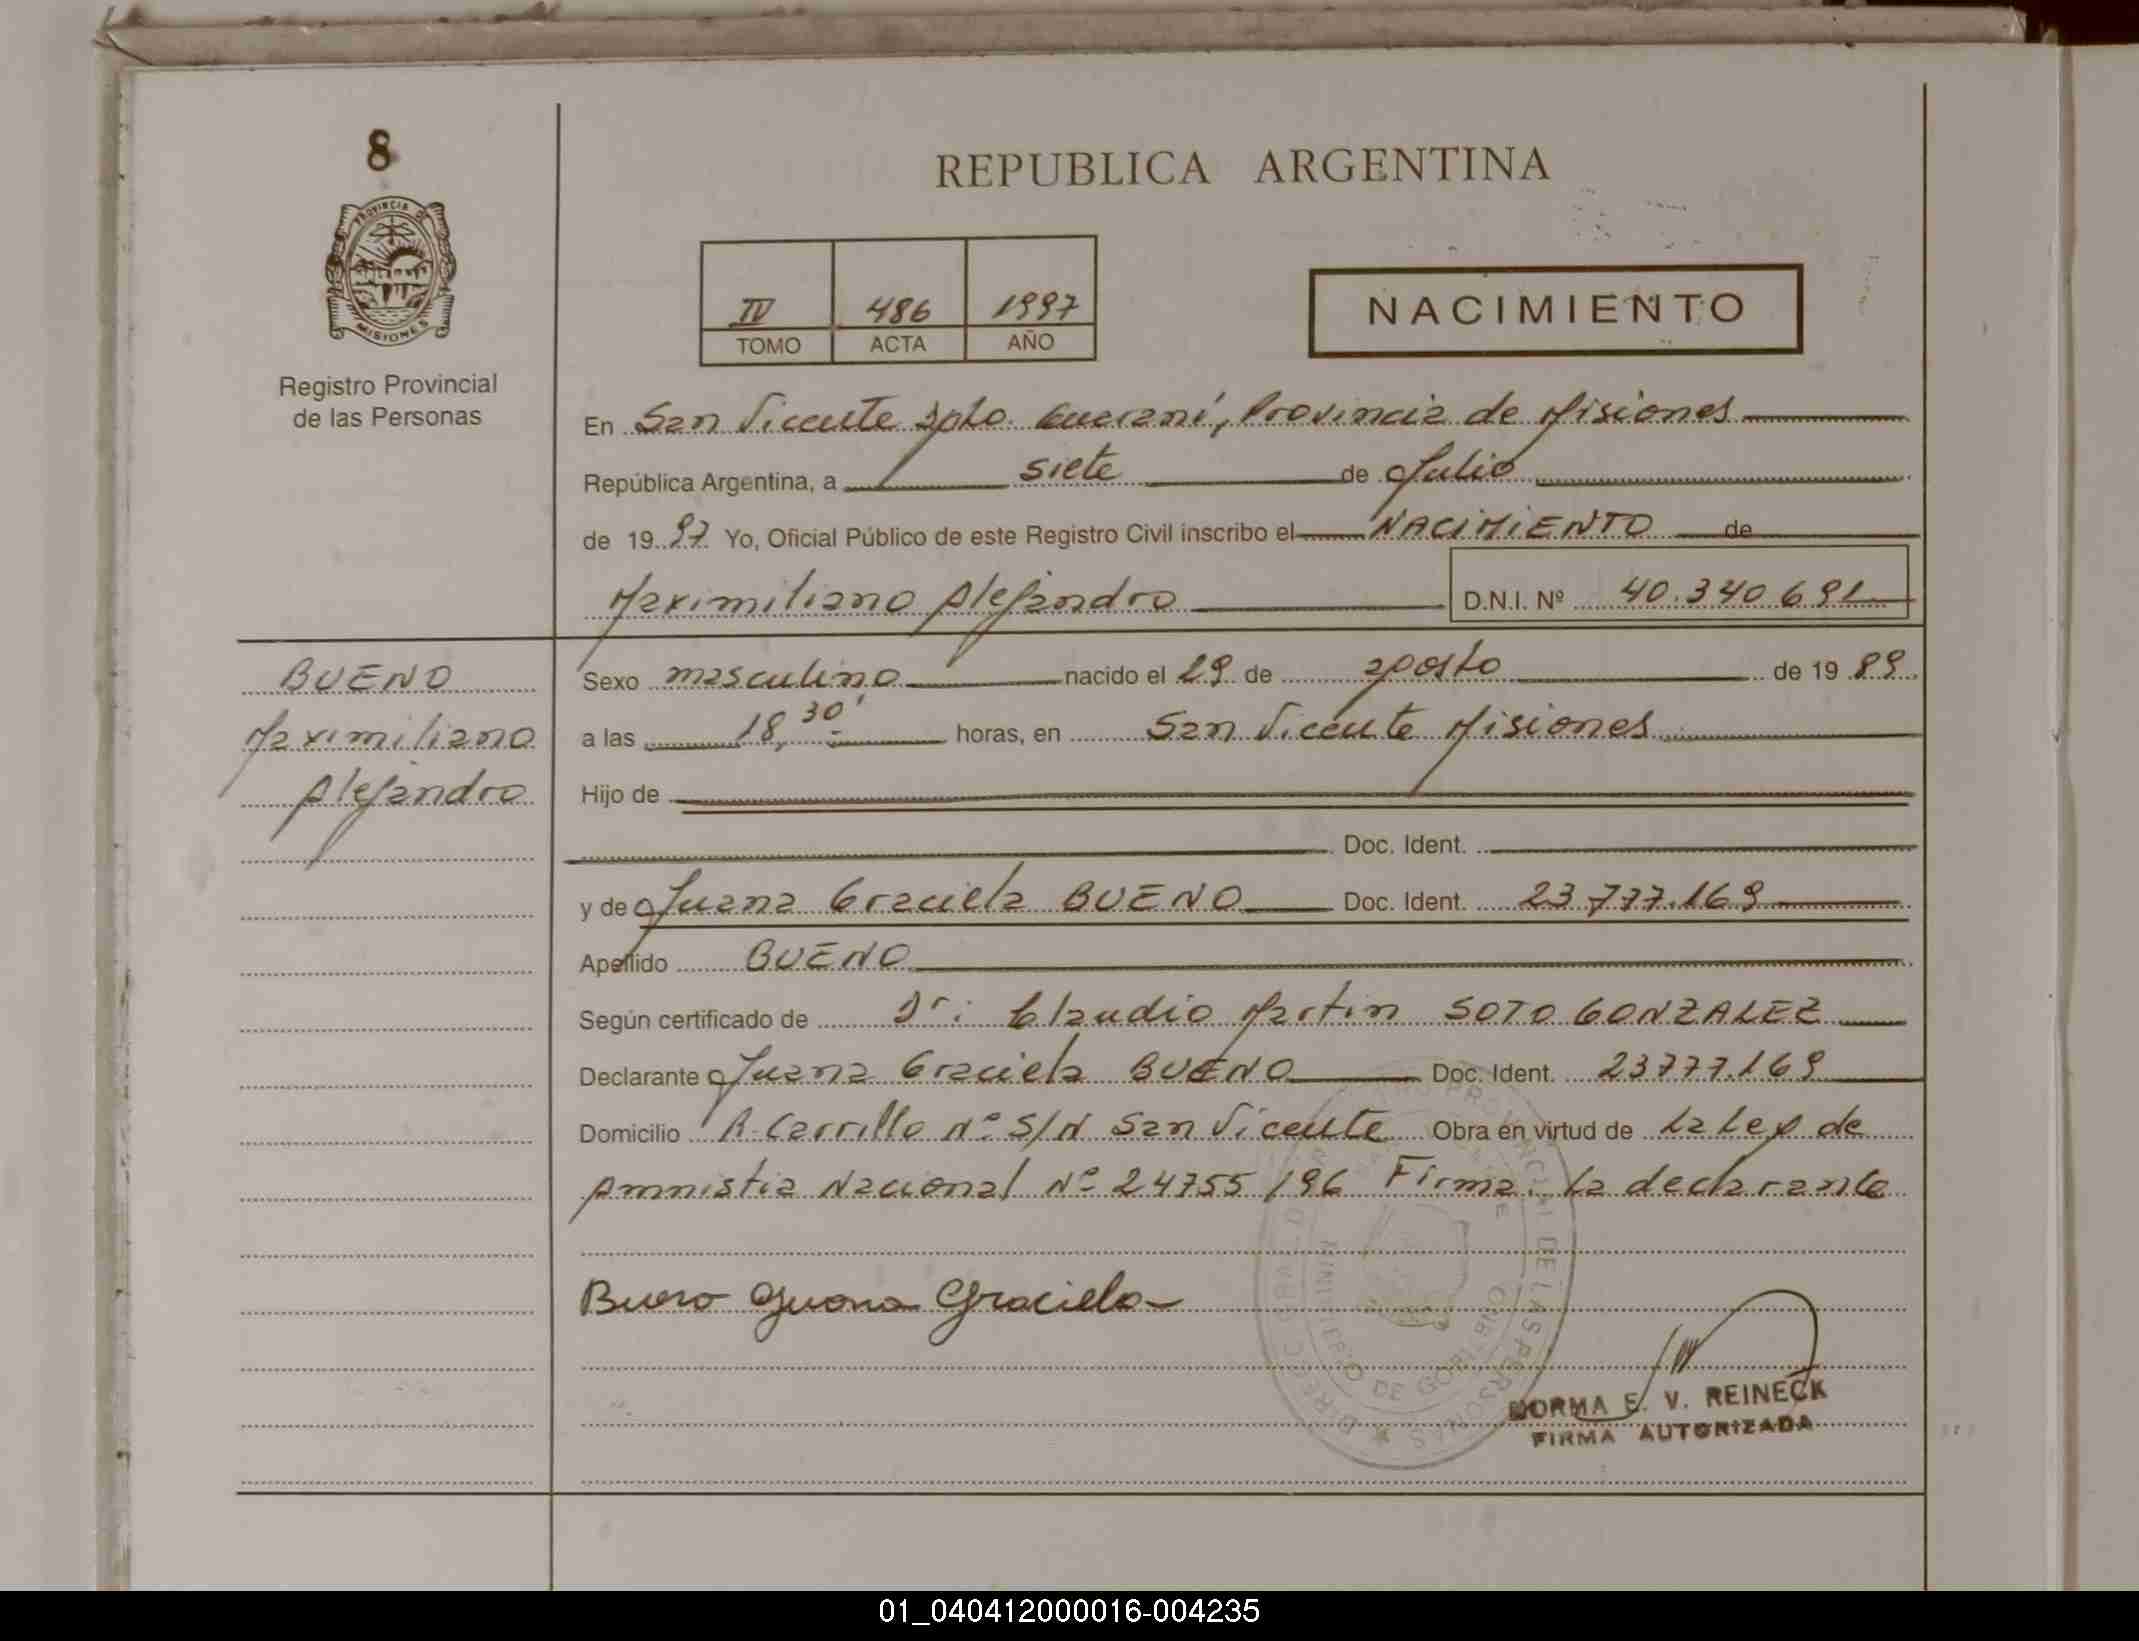 8
PROVINCIA DE
MISIONES
Registro Provincial
de las Personas
REPUBLICA ARGENTINA
IV 486 1997
TOMO ACTA AÑO
NACIMIENTO
En San Vicente Dpto. Guaraní, Provincia de Misiones
República Argentina, a siete de Julio
de 1997 Yo, Oficial Público de este Registro Civil inscribo el NACIMIENTO de
Maximiliano Alejandro D.N.I. Nº 40.340.691
BUENO
Maximiliano
Alejandro
Sexo masculino nacido el 29 de agosto de 1989
a las 18,30' horas, en San Vicente Misiones
Hijo de
Doc. Ident.
y de Juana Graciela BUENO Doc. Ident. 23.777.169
Apellido BUENO
Según certificado de Dr: Claudio Martin SOTO GONZALEZ
Declarante Juana Graciela BUENO Doc. Ident. 23777.169
Domicilio R. Carrillo Nº S/N San Vicente Obra en virtud de la Ley de
Amnistia Nacional Nº 24755/96 Firma: la declarante
Bueno Juana Graciela
MINISTERIO DE GOBIERNO
NORMA E. V. REINECK
FIRMA AUTORIZADA
01_040412000016-004235